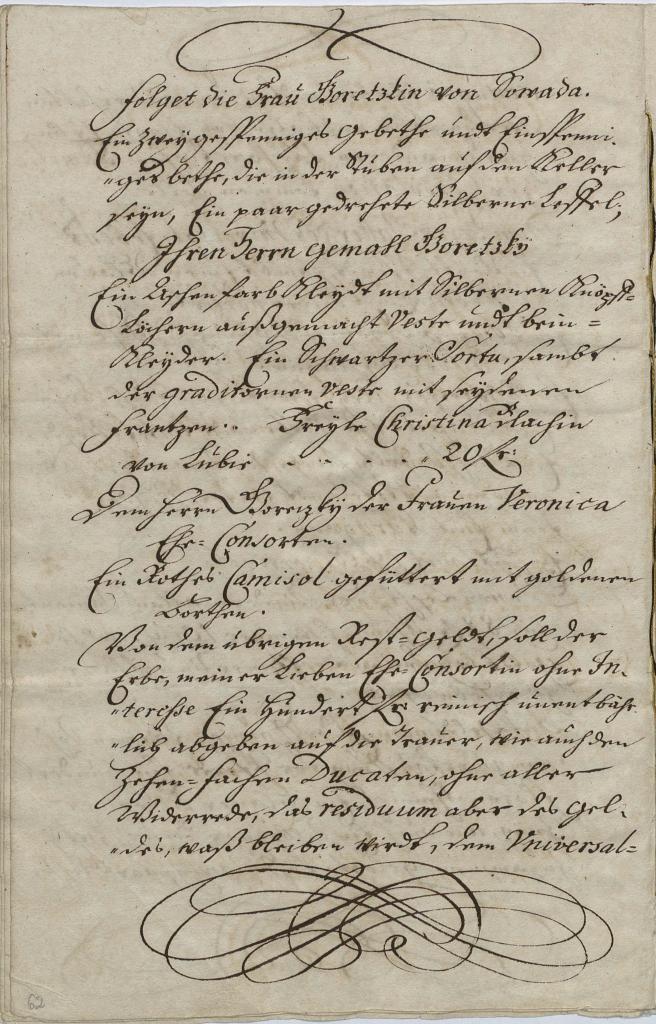 folget die Frau Boretzkin von Sowada.
Ein zweyspenniges Gebethe undt Einspenni-
ges bethe, die in der Stuben auf den Keller
seyn, Ein paar gedrehete Silberne Leffel,
Ihren Herrn Gemahl Boretzky
Ein Aschenfarb Kleydt mit Silbernen Knöpf-
Löchern außgemacht Veste undt bein-
Kleyder. Ein Schwartzer sambt
der graditornen Veste mit seydenen
Frantzen. Freyle Christina Blachin
von Lubie . . . . 20 fr:
Dem Herrn der Frauen Veronica
Ehe-Consorten.
Ein Rothes Camisol gefüttert mit goldenen
Borthen.
Von dem übrigen Rest-Geldt, soll der
Erbe, meiner Lieben Ehe-Consortin ohne In-
teresse Ein Hundert fr reinisch unentbähr-
lich abgeben auf die Trauer, wie auch den
Zehen-fachen Ducaten, ohne aller
Widerrede, das residuum aber des Gel-
des, waß bleiben wirdt, dem Universal-
62